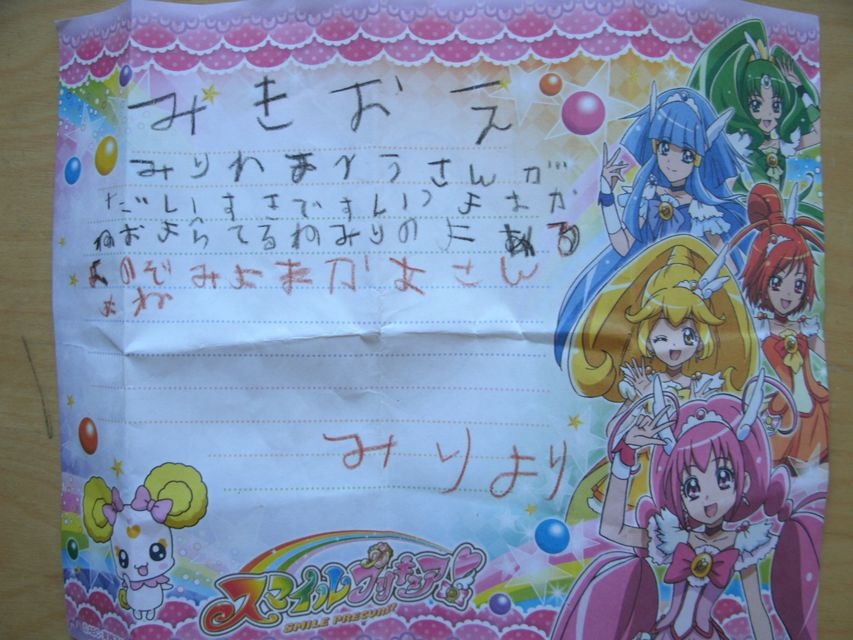 みきおえ
みりわまへうさんが
だいすきですいつよまか
ねおよらてるわみりのよ ある
よのぞみよまがよさん
よね
みりより
スマイルプリキュア!
SMILE PRECURE!